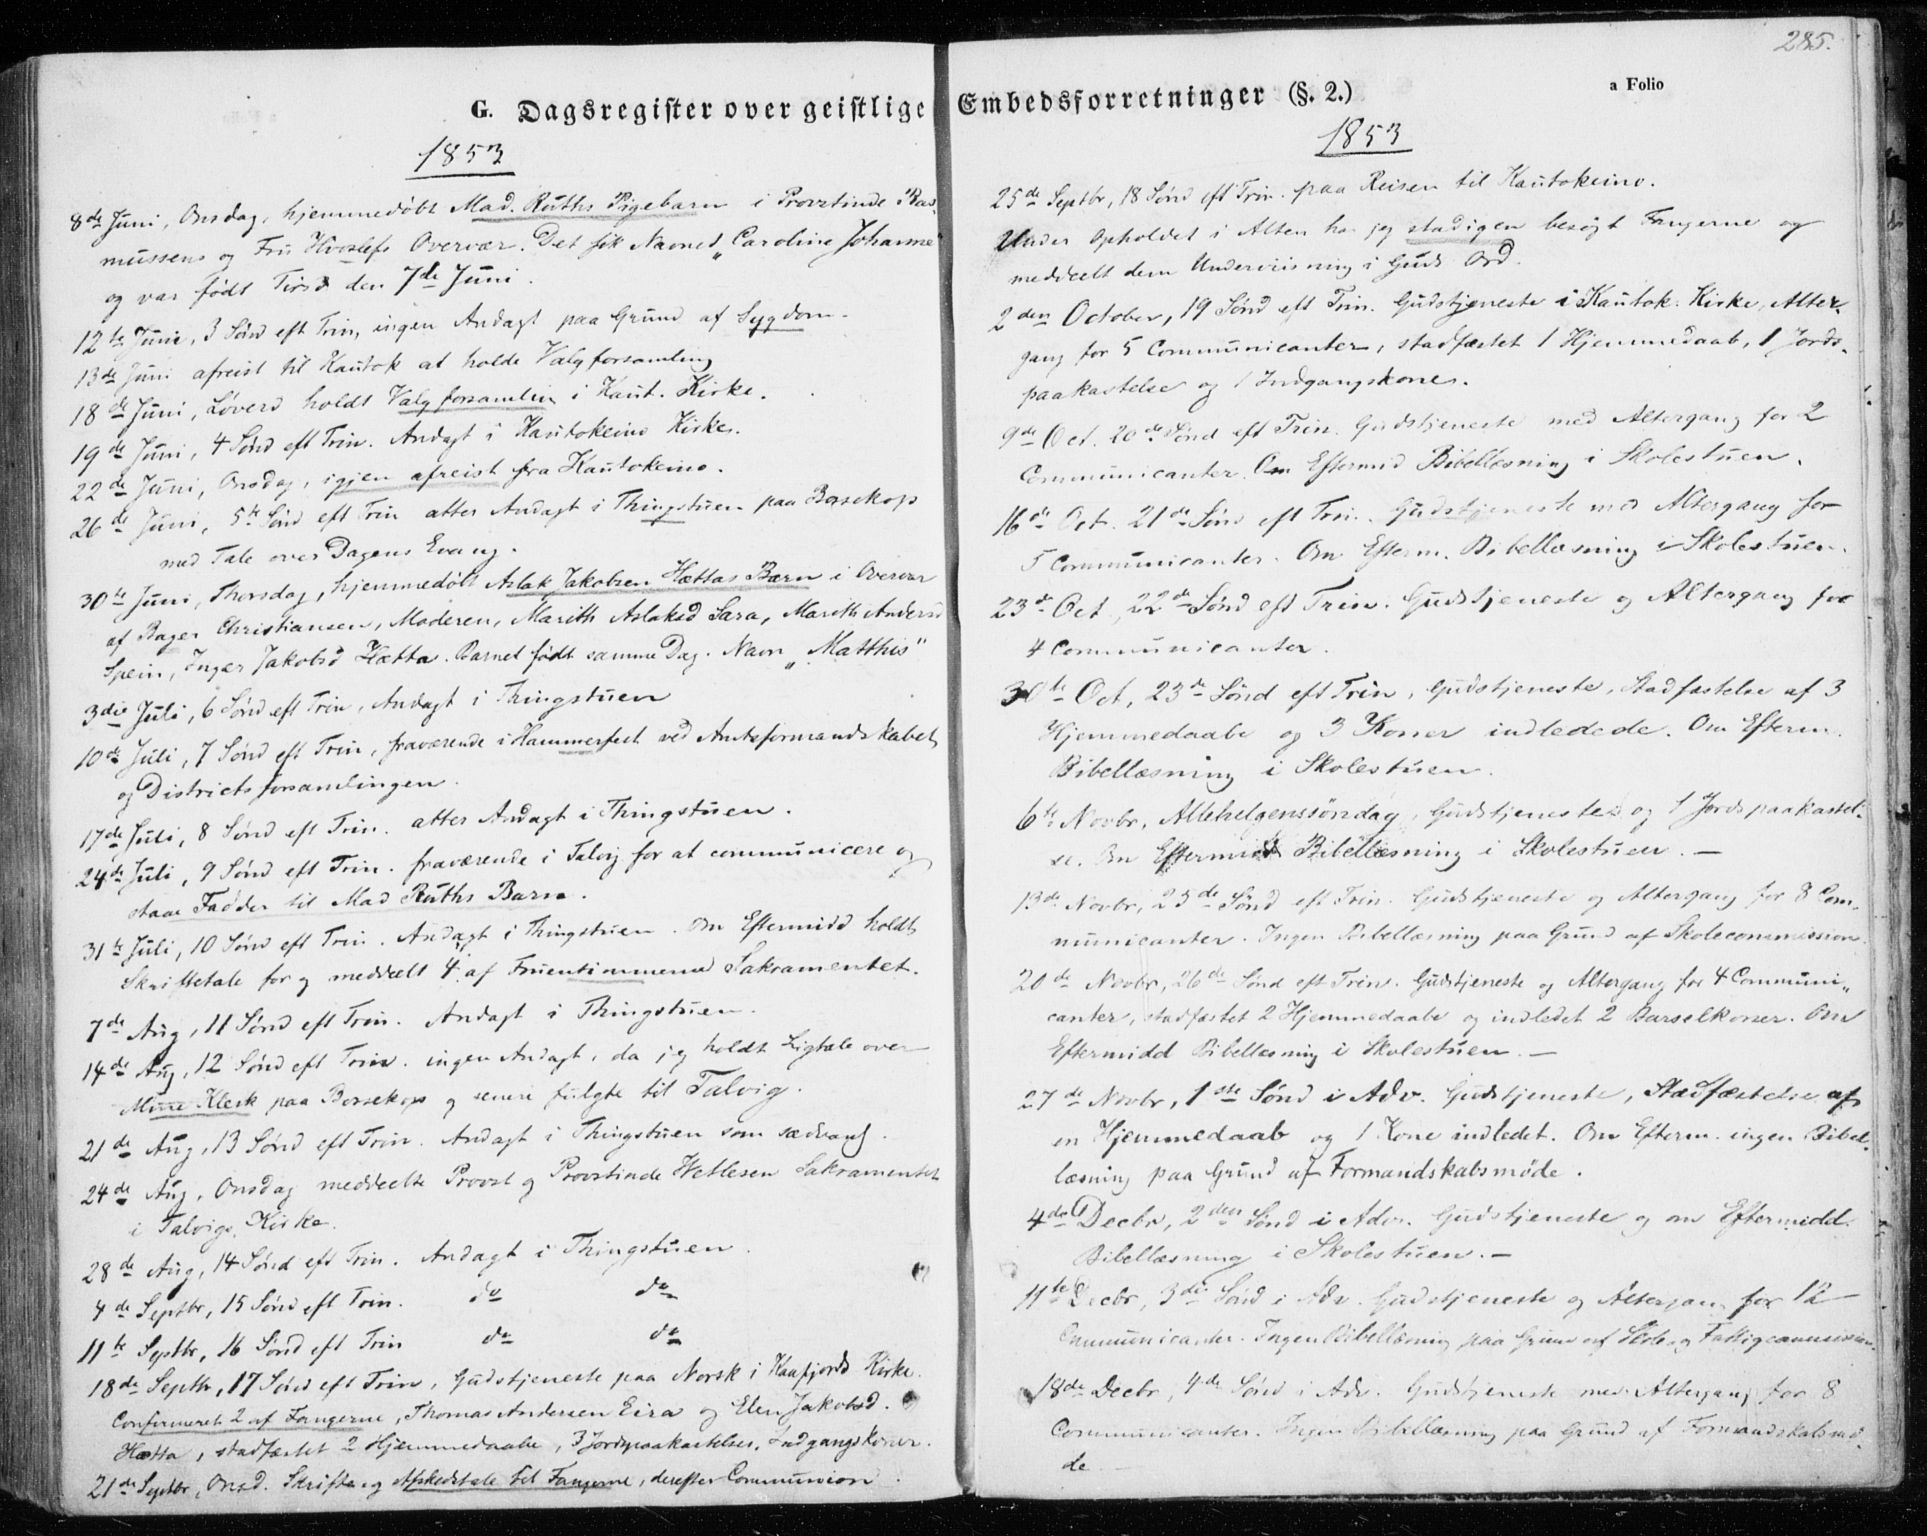 G. Dagsregister over geistlige
1853
8de Juni, Onsdag, hjemmedøbt Mad. Ruths Pigebarn i Provstinde Ras-
mussens og Fru Hvoslefs Overvær. Det fik Navnet „Caroline Johanne“
og var født Tirsd den 7de Juni.
12te Juni, 3 Sønd eft Trin, ingen Andagt paa Grund af Sygdom.
13de Juni afreist til Kautok at holde Valgforsamling
18de Juni, Løverd holdt Valgforsamlin i Kaut. Kirke.
19de Juni, 4 Sønd eft Trin. Andagt i Kautokeino Kirke.
22de Juni, Onsdag, igjen afreist fra Kautokeino.
26de Juni, 5te Sønd eft Trin atter Andagt i Thingstuen paa Bosekop
med Tale over Dagens Evang.
30te Juni, Thorsdag, hjemmedøbt Aslak Jakobsen Hættas Barn i Overvær
af Bager Christiansen, Moderen, Marith Aslaksd Sara, Marith Andersd
Spein, Inger Jakobsd Hætta. Barnet født samme Dag. Navn „Matthis“
3die Juli, 6 Sønd eft Trin, Andagt i Thingstuen
10de Juli, 7 Sønd eft Trin, fraværende i Hammerfest ved Amtsformandskabet
og Districtsforsamlingen.
17de Juli, 8 Sønd eft Trin. atter Andagt i Thingstuen.
24de Juli, 9 Sønd eft Trin. fraværende i Talvig for at communicere og
staae Fadder til Mad Ruths Barn.
31te Juli, 10 Sønd eft Trin. Andagt i Thingstuen. Om Eftermidd holdt
Skriftetale for og meddeelt 4 af Fruentimmerne Sakramentet.
7de Aug, 11 Sønd eft Trin. Andagt i Thingstuen.
14de Aug, 12 Sønd eft Trin. ingen Andagt, da jeg holdt Ligtale over
Klerk paa Bossekop og senere fulgte til Talvig.
21de Aug, 13 Sønd eft Trin. Andagt i Thingstuen som sædvanl.
24de Aug, Onsdag meddeelte Provst og Provstinde Wetlesen Sakramentet
i Talvigs Kirke.
28de Aug, 14 Sønd eft Trin. Andagt i Thingstuen.
4de Septbr, 15 Sønd eft Trin. do do
11te Septbr, 16 Sønd eft Trin do do
18de Septbr, 17 Sønd eft Trin, Gudstjeneste paa Norsk i Kaafjords Kirke.
Confirmeret 2 af Fangerne, Thomas Andersen Eira og Elen Jakobsd.
Hætta, stadfæstet 2 Hjemmedaabe, 3 Jordpaakastelser, Indgangskoner.
21de Septbr, Onsd. Skrifte og Afskedstale til Fangerne, derefter Communion.
285.
Embedsforretninger (§. 2.)
a Folio
1853
25de Septbr, 18 Sønd eft Trin. paa Reisen til Kautokeino.
Under Opholdet i Alten har jeg stadigen besøgt Fangerne og
meddeelt dem Underviisning i Guds Ord.
2den October, 19 Sønd eft Trin. Gudstjeneste i Kautok. Kirke, Alter-
gang for 5 Communicanter, stadfæstet 1 Hjemmedaab, 1 Jords-
paakastelse og 1 Indgangskone.
9de Oct. 20de Sønd eft Trin. Gudstjeneste med Altergang for 2
Communicanter. Om Eftermid Bibellæsning i Skolestuen.
16de Oct. 21de Sønd eft Trin. Gudstjeneste med Altergang for
5 Communicanter. Om Efterm. Bibellæsning i Skolestuen.
23de Oct, 22de Sønd eft Trin. Gudstjeneste og Altergang for
4 Communicanter.
30te Oct, 23de Sønd eft Trin, Gudstjeneste, Stadfæstelse af 3
Hjemmedaabe og 3 Koner indledede. Om Efterm.
Bibellæsning i Skolestuen.
6te Novbr, Allehelgenssöndag, Gudstjeneste og 1 Jordspaakastel-
se. Om Eftermid Bibellæsning i Skolestuen. —
13de Novbr, 25de Sønd eft Trin. Gudstjeneste og Altergang for 8 Com-
municanter. Ingen Bibellæsning paa Grund af Skolecommission.
20de Novbr, 26de Sønd eft Trin. Gudstjeneste og Altergang for 4 Communi-
canter, stadfæstet 2 Hjemmedaabe og indledet 2 Barselkoner. Om
Eftermidd Bibellæsning i Skolestuen. —
27de Novbr, 1ste Sønd i Adv. Gudstjeneste, Stadfæstelse af
en Hjemmedaab og 1 Kone indledet. Om Efterm. ingen Bibel-
læsning paa Grund af Formandskabsmøde.
4de Decbr, 2den Sønd i Adv. Gudstjeneste og om Eftermidd.
Bibellæsning i Skolestuen. —
11te Decbr, 3die Sønd i Adv. Gudstjeneste og Altergang for 12
Communicanter. Ingen Bibellæsning paa Grund af Skole og Fattigcommission.
18de Decbr, 4de Sønd i Adv. Gudstjeneste med Altergang for 8
Communicanter. Ingen Bibellæsning paa Grund af Formandskabsmö-
de